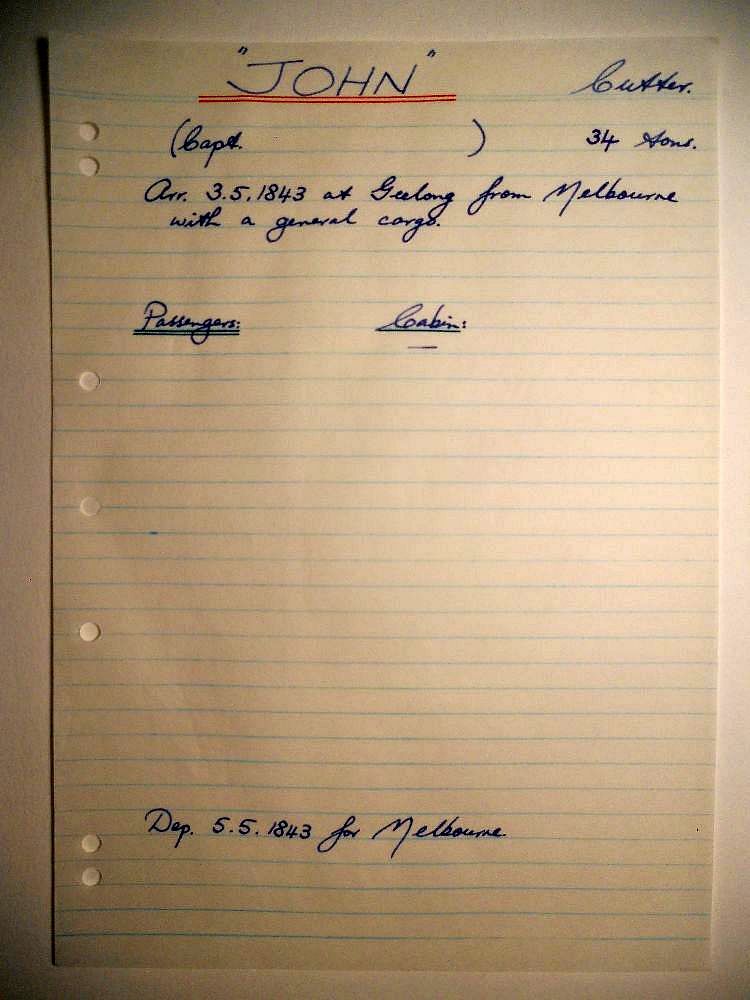 "JOHN" Cutter.
(Capt. ) 34 tons.
Arr. 3.5.1843 at Geelong from Melbourne
with a general cargo.
Passengers: Cabin:
—
Dep. 5.5.1843 for Melbourne